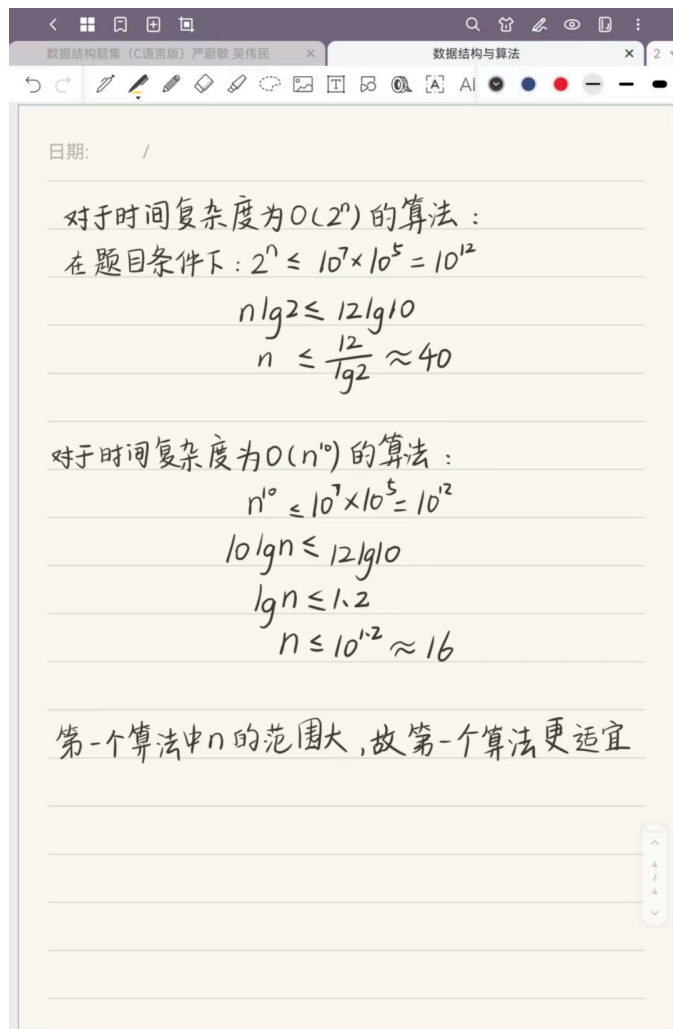 数据结构题集（C语言版）严蔚敏 吴伟民 ×
数据结构与算法 ×
2
T A AI
日期: /
对于时间复杂度为O(2ⁿ)的算法：
在题目条件下：2ⁿ ≤ 10⁷×10⁵=10¹²
nlg2≤ 12lg10
n ≤ 12/lg2 ≈40
对于时间复杂度为O(n¹⁰)的算法：
n¹⁰ ≤10⁷×10⁵=10¹²
10lgn≤ 12lg10
lgn≤1.2
n≤10^1.2≈16
第一个算法中n的范围大,故第一个算法更适宜
4
/
4